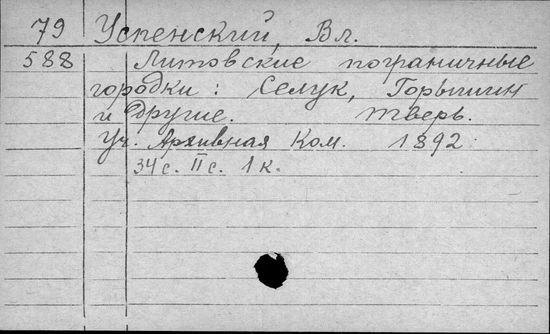 79 Успенский, Вл.
588 Литовские пограничные
городки: Селук, Горышин
и другие. Тверь.
Уч. Архивная Ком. 1892
34 с. II с. 1 к.